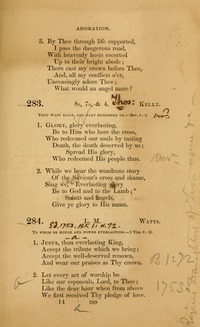 ADORATION.
3. By Thee through life supported,
I pass the dangerous road,
With heavenly hosts escorted
Up to their bright abode;
There cast my crown before Thee,
And, all my conflicts o'er,
Unceasingly adore Thee;
What would an angel more?
283. 8s, 7s, & 4. Thos: KELLY.
THOU WAST SLAIN, AND HAST REDEEMED US.
1. GLORY, glory everlasting,
Be to Him who bore the cross,
Who redeemed our souls by tasting
Death, the death deserved by us;
Spread His glory,
Who redeemed His people thus.
2. While we hear the wondrous story
Of the Saviour's cross and shame,
Sing we, "Everlasting glory
Be to God and to the Lamb;"
Saints and angels,
Give ye glory to His name.
284. L. M. WATTS.
TO WHOM BE HONOR AND POWER EVERLASTING.
1. JESUS, thou everlasting King,
Accept the tribute which we bring;
Accept the well-deserved renown,
And wear our praises as Thy crown.
B 1:72
2. Let every act of worship be
Like our espousals, Lord, to Thee;
Like the dear hour when from above
We first received Thy pledge of love.
14